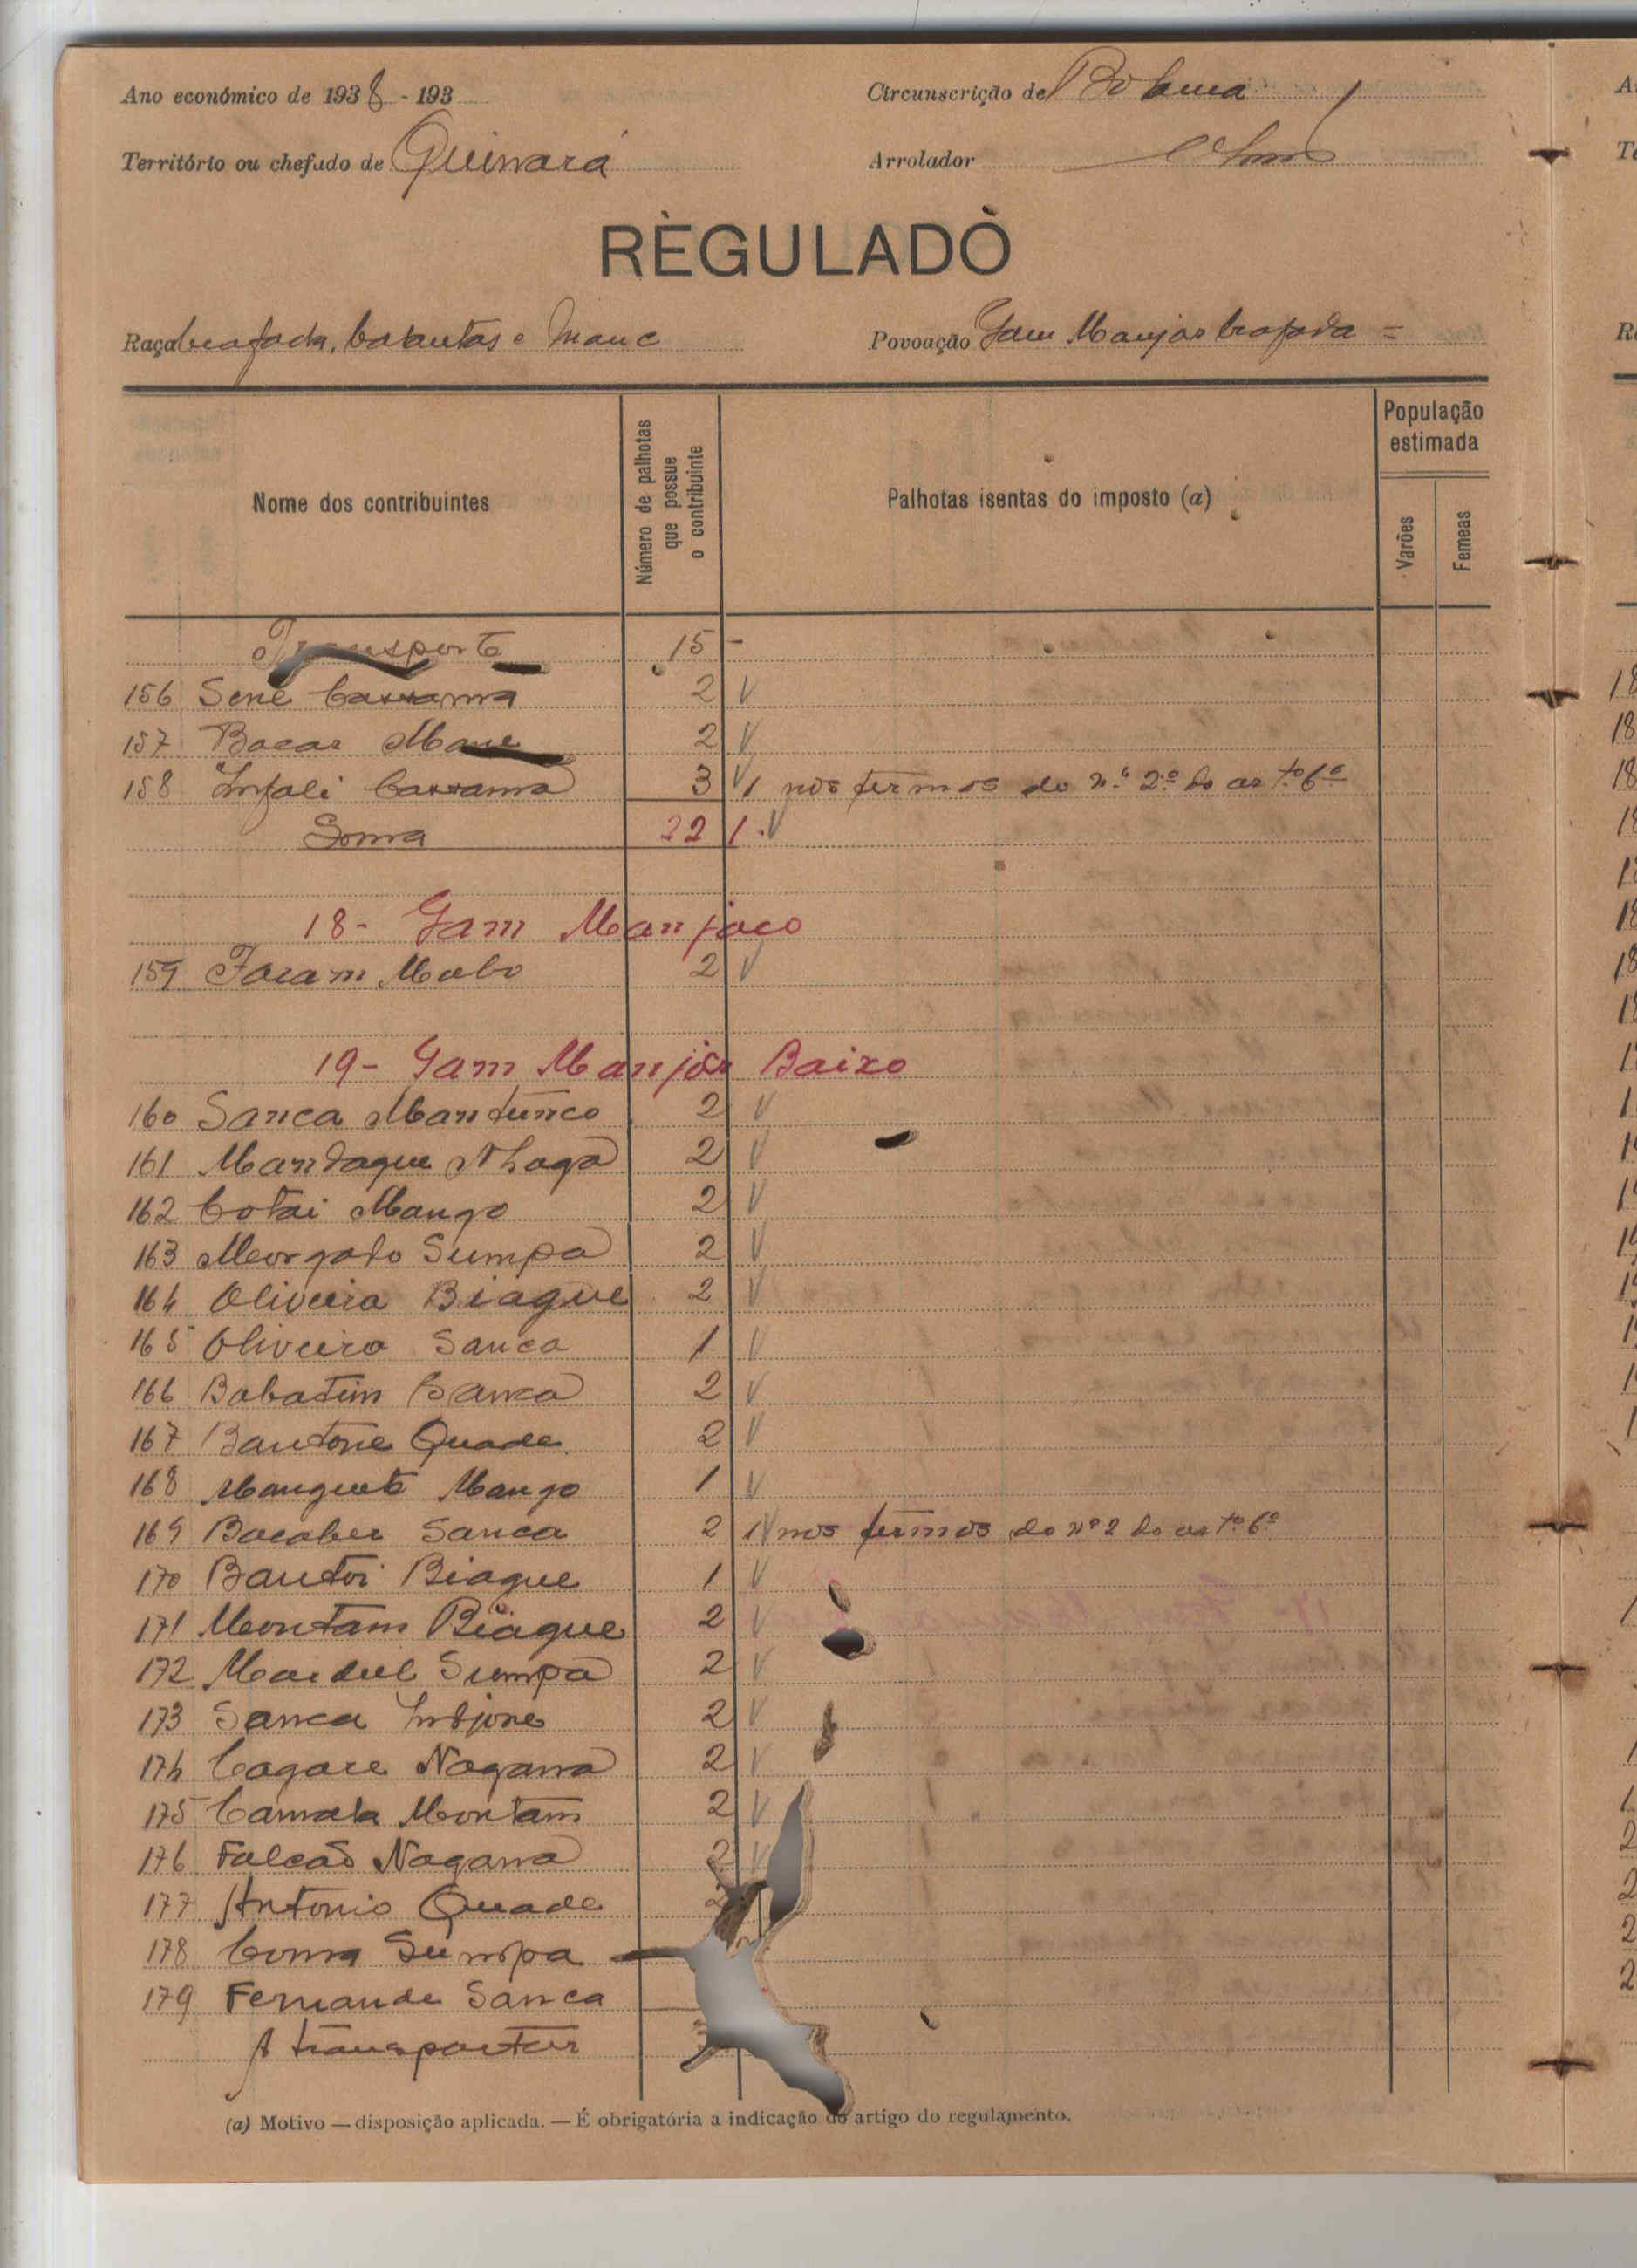 Ano económico de 1938 - 193
Circunscrição de Bolama
Território ou chefado de Quinará
Arrolador
REGULADO
Raça beafada, balantas e manc
Povoação Gam Manjas beafada =
Nome dos contribuintes
Número de palhotas que possue o contribuinte
Palhotas isentas do imposto (a)
População estimada
Varões
Femeas
Transporte 15 -
156 Sene Cassama 2 V
157 Bacar Mane 2 V
158 Infali Cassama 3 V 1 nos termos do n.º 2.º do artº 6º
Soma 22 1 . V
18 - Gam Manjaco
159 Faram Mabo 2 V
19 - Gam Manjôr Baixo
160 Sanca Mantunco 2 V
161 Mandaque Nhaga 2 V
162 Cotai Mango 2 V
163 Morgado Sumpa 2 V
164 Oliveira Biague 2 V
165 Oliveira Sanca 1 V
166 Babatim Sanca 2 V
167 Bantone Quade 2 V
168 Manguete Mango 1 V
169 Bacaber Sanca 2 1 V nos termos do nº 2 do artº 6º
170 Bantoi Biague 1 V
171 Montam Biague 2 V
172 Sumpa 2 V
173 Sanca Intjone 2 V
174 Cagare Nagana 2 V
175 Camala Montam 2 V
176 Falcão Nagana 2 V
177 Antonio Quade 2
178 Coma Sumpa
179 Fernande Sanca
A transportar
(a) Motivo — disposição aplicada. — É obrigatória a indicação do artigo do regulamento.